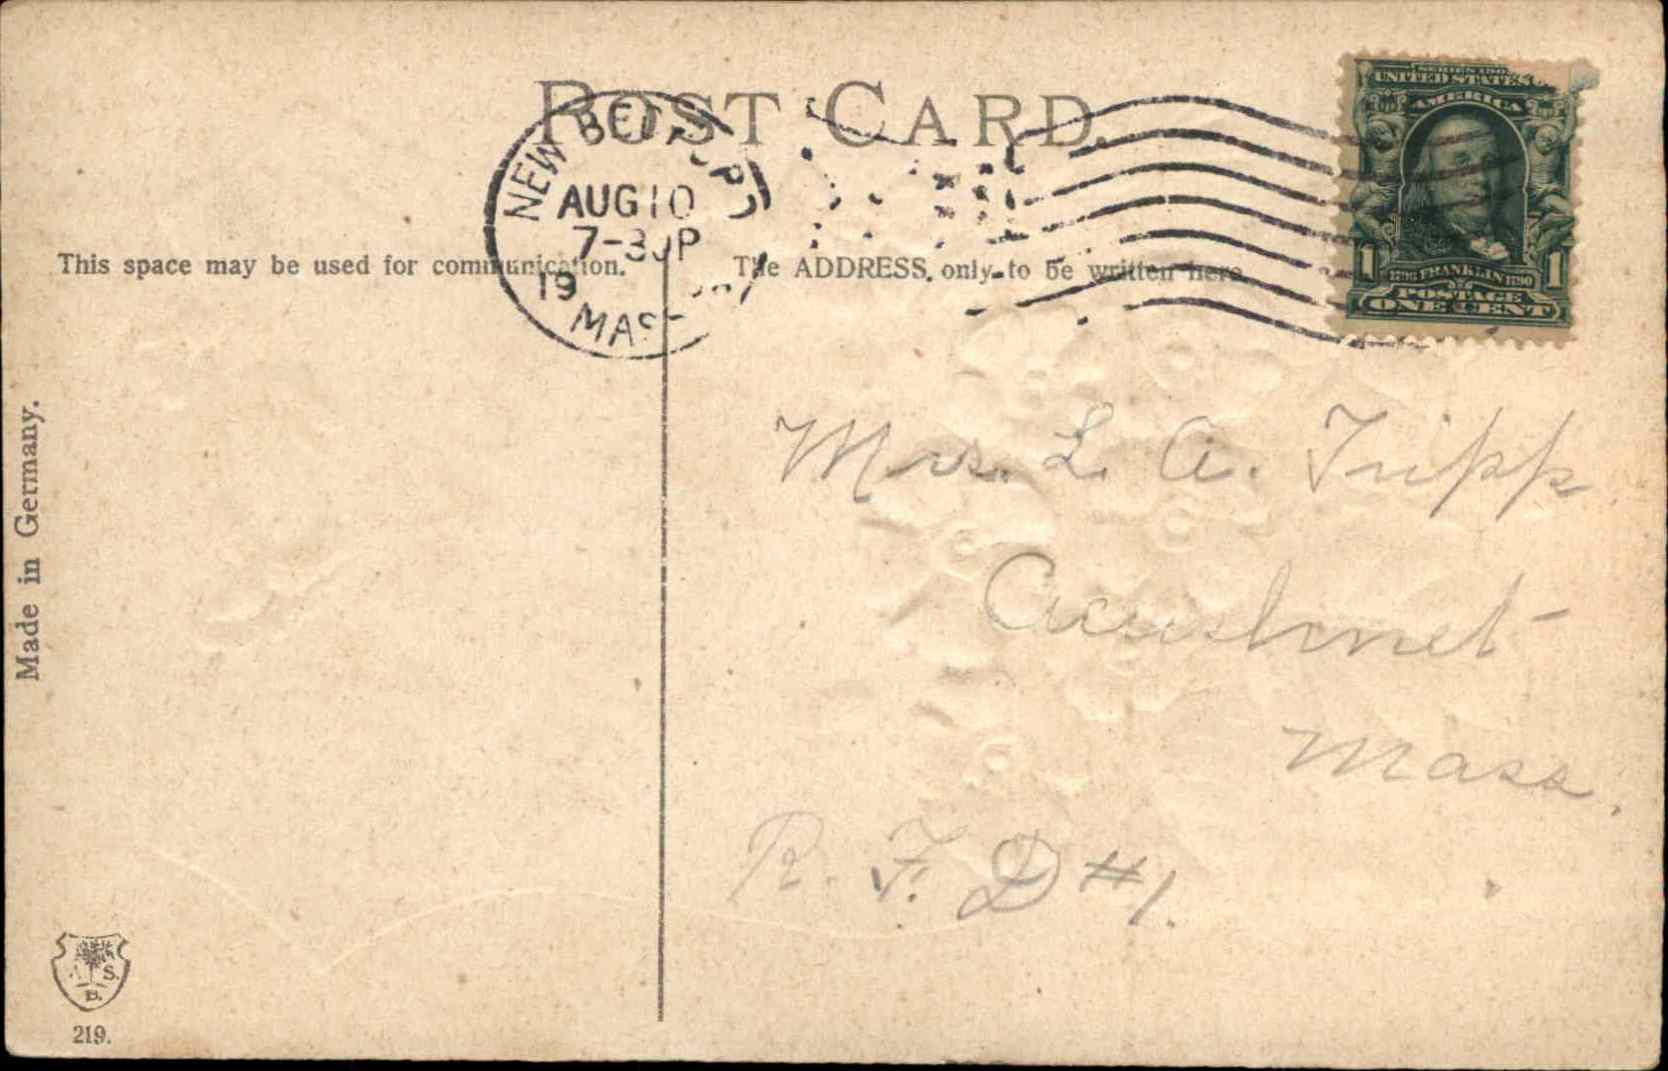 POST CARD.
NEW BEDFORD
AUG 10
7-30P
19
MASS
This space may be used for communication.
The ADDRESS only to be written here.
SERIES 1902
UNITED STATES OF
AMERICA
1 1706 FRANKLIN 1790 1
POSTAGE
ONE CENT
Mrs. L. A. Tripp
Acushnet
Mass.
R. F. D #1.
Made in Germany.
S.
B.
219.